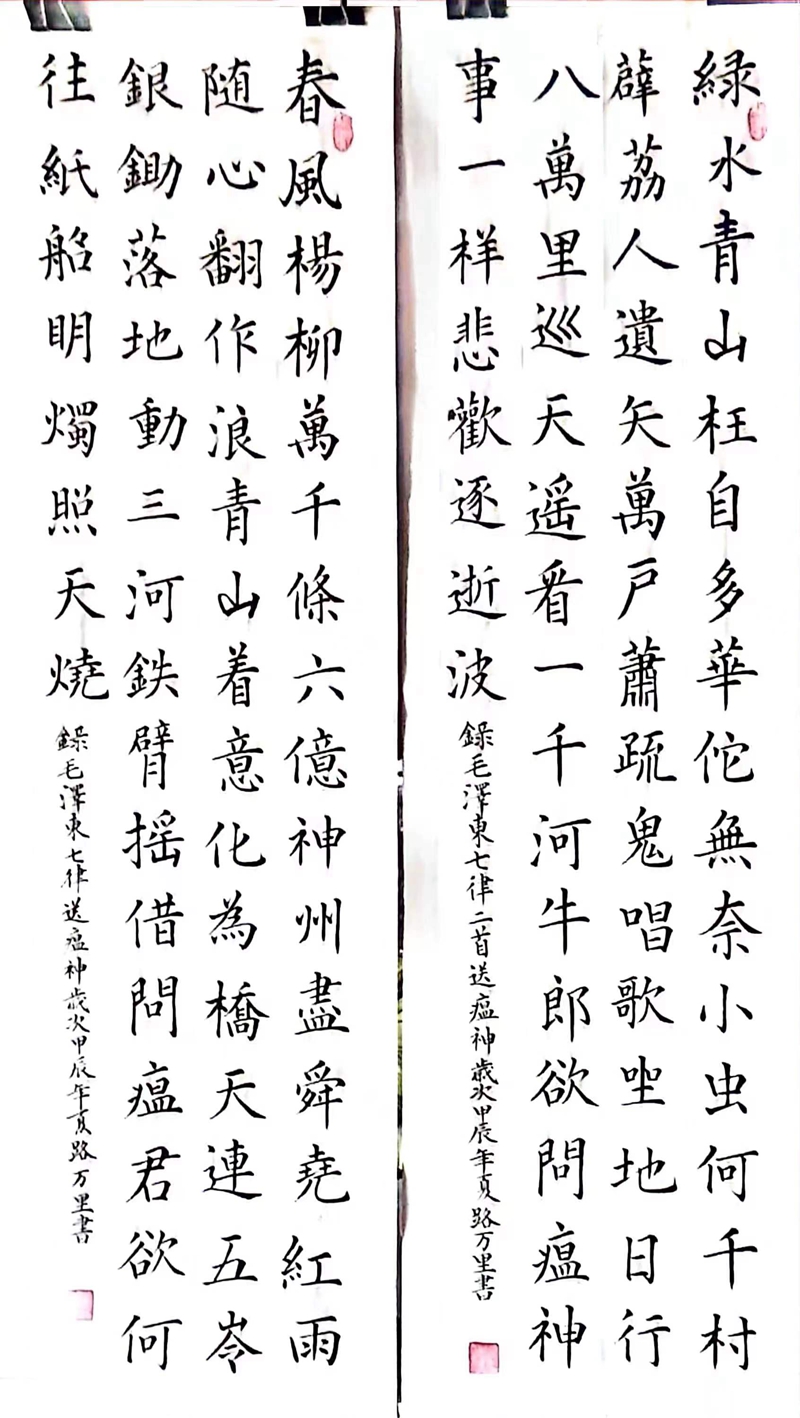 緑水青山枉自多華佗無奈小虫何千村
薜荔人遺矢萬戸蕭疏鬼唱歌坐地日行
八萬里巡天遥看一千河牛郎欲問瘟神
事一样悲歡逐逝波
錄毛澤東七律二首送瘟神歲次甲辰年夏路万里書
春風楊柳萬千條六億神州盡舜堯紅雨
随心翻作浪青山着意化為橋天連五岺
銀鋤落地動三河鉄臂摇借問瘟君欲何
往紙船明燭照天燒
錄毛澤東七律送瘟神歲次甲辰年夏路万里書